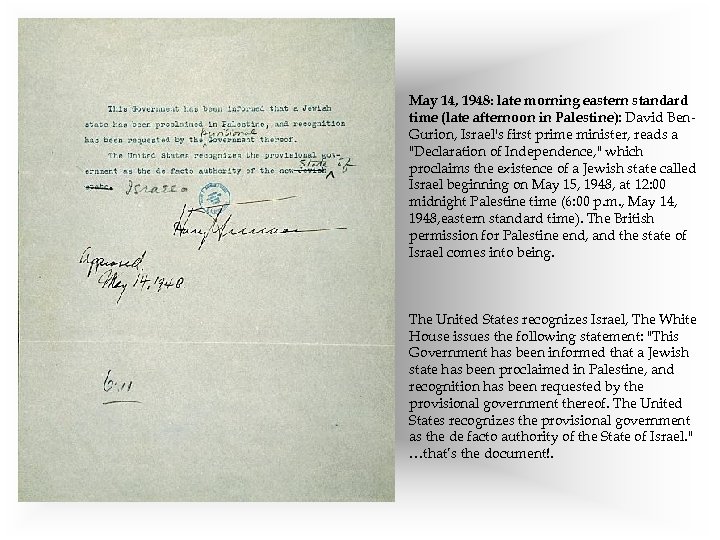 This Government has been informed that a Jewish
state has been proclaimed in Palestine, and recognition
provisional
has been requested by the Government thereof.
The United States recognizes the provisional gov-
ernment as the de facto authority of the new Jewish
State of
state. Israel
Harry Truman
Approved
May 14, 1948
6:11
May 14, 1948: late morning eastern standard
time (late afternoon in Palestine): David Ben-
Gurion, Israel's first prime minister, reads a
"Declaration of Independence, " which
proclaims the existence of a Jewish state called
Israel beginning on May 15, 1948, at 12:00
midnight Palestine time (6:00 p.m., May 14,
1948, eastern standard time). The British
permission for Palestine end, and the state of
Israel comes into being.
The United States recognizes Israel, The White
House issues the following statement: "This
Government has been informed that a Jewish
state has been proclaimed in Palestine, and
recognition has been requested by the
provisional government thereof. The United
States recognizes the provisional government
as the de facto authority of the State of Israel."
…that's the document!.